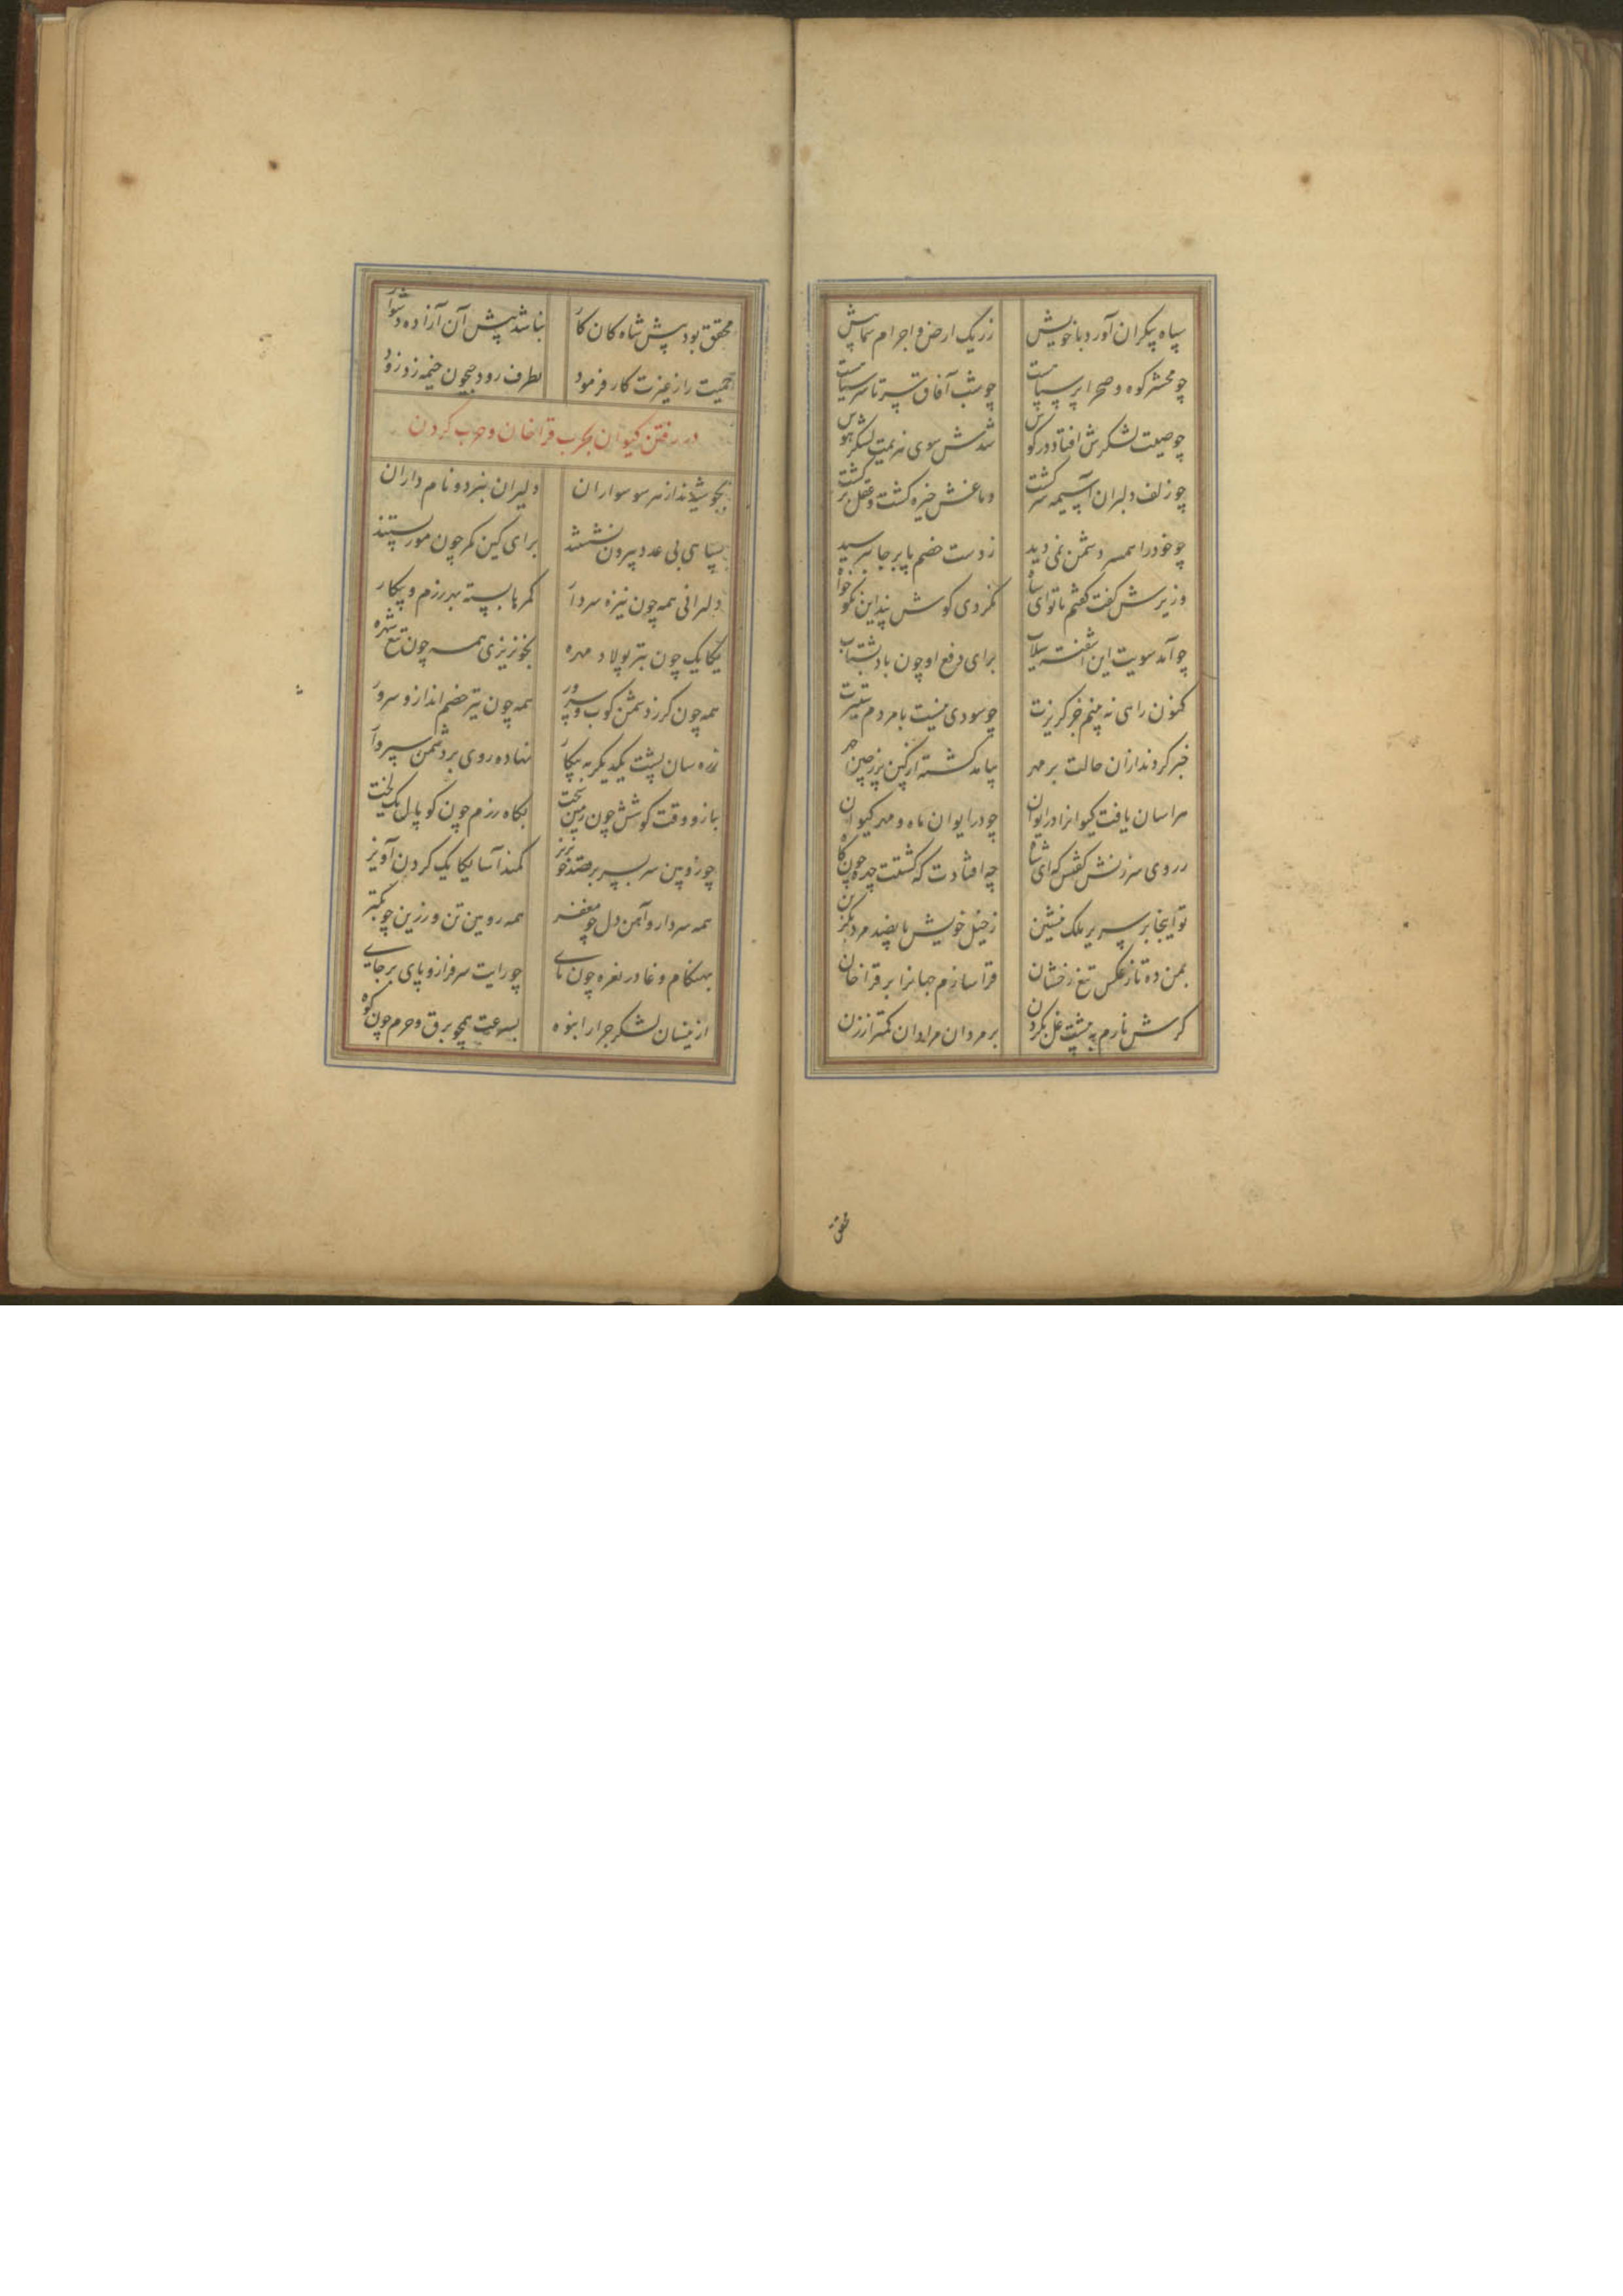 سپاه بیکران آورد با خویش ز ریک ارض و اجرام سما بیش
چو محشر کوه و صحرا پر سپاهست چو شب آفاق سر تا سر سیاهست
چو صیت لشکرش افتاد در کوش شدش سوی هزیمت لشکر هوش
چو زلف دلبران آسیمه سر کشت دماغش خیره کشت و عقل بر کشت
چو خود را همسر دشمن نمی دید ز دست خصم پا بر جا بترسید
وزیرش کفت کفتم با تو ای شاه نکردی کوش پند این نکوخواه
چو آمد سویت این آشفته سیلاب برای دفع او چون باد بشتاب
کنون راهی نه بینم جز کریزت چو سودی نیست با مردم ستیزت
خبر کردند ازان حالت بر مهر بیامد کشته از کین پر ز چین چهر
هراسان یافت کیوانرا در ایوان چو در ایوان ماه و مهر کیوان
ز روی سرزنش کفتش که ای شاه چه افتادت که کشتت چهره چون کاه
تو اینجا بر سریر ملک بنشین ز خیل خویش با پنصد مرد بکزین
بمن ده تا ز عکس تیغ رخشان قرا سازم جهانرا بر قراخان
کرش نارم به پیشت غل بکردن بر مردان مرا دان کمتر از زن
محقق
محقق بود پیش شاه کان کار نباشد پیش آن آزاده دشوار
حمیت را ز غیرت کار فرمود بطرف رود جیحون خیمه زد زود
در رفتن کیوان بحرب قراخان و حرب کردن
بجوشیدند از هر سو سواران دلیران نبرد و نام داران
سپاهی بی عدد بیرون نشستند برای کین کمر چون مور بستند
دلیرانی همه چون نیزه سردار کمرها بسته بهر رزم و پیکار
یکایک چون تبر پولاد مهره بخونریزی همه چون تیغ شهره
همه چون کرز دشمن کوب و سرور همه چون تیر خصم انداز و سرور
زره سان پشت یکدیکر به پیکار نهاده روی بر دشمن سپروار
ببازو وقت کوشش چون زمین سخت بکاه رزم چون کوپال یک لخت
چو زوبین سر بسر بر قصد خونریز کمند آسا یکایک کردن آویز
همه سردار و آهن دل چو مغفر همه روین تن و رزین چو بکتر
بهنکام وغا در نعره چون نای چو رایت سرفراز و پای برجای
ازینسان لشکر جرار انبوه بسرعت همچو برق و حزم چون کوه